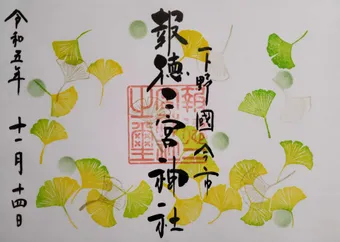 下野國今市
報徳二宮神社
令和五年
十一月十四日